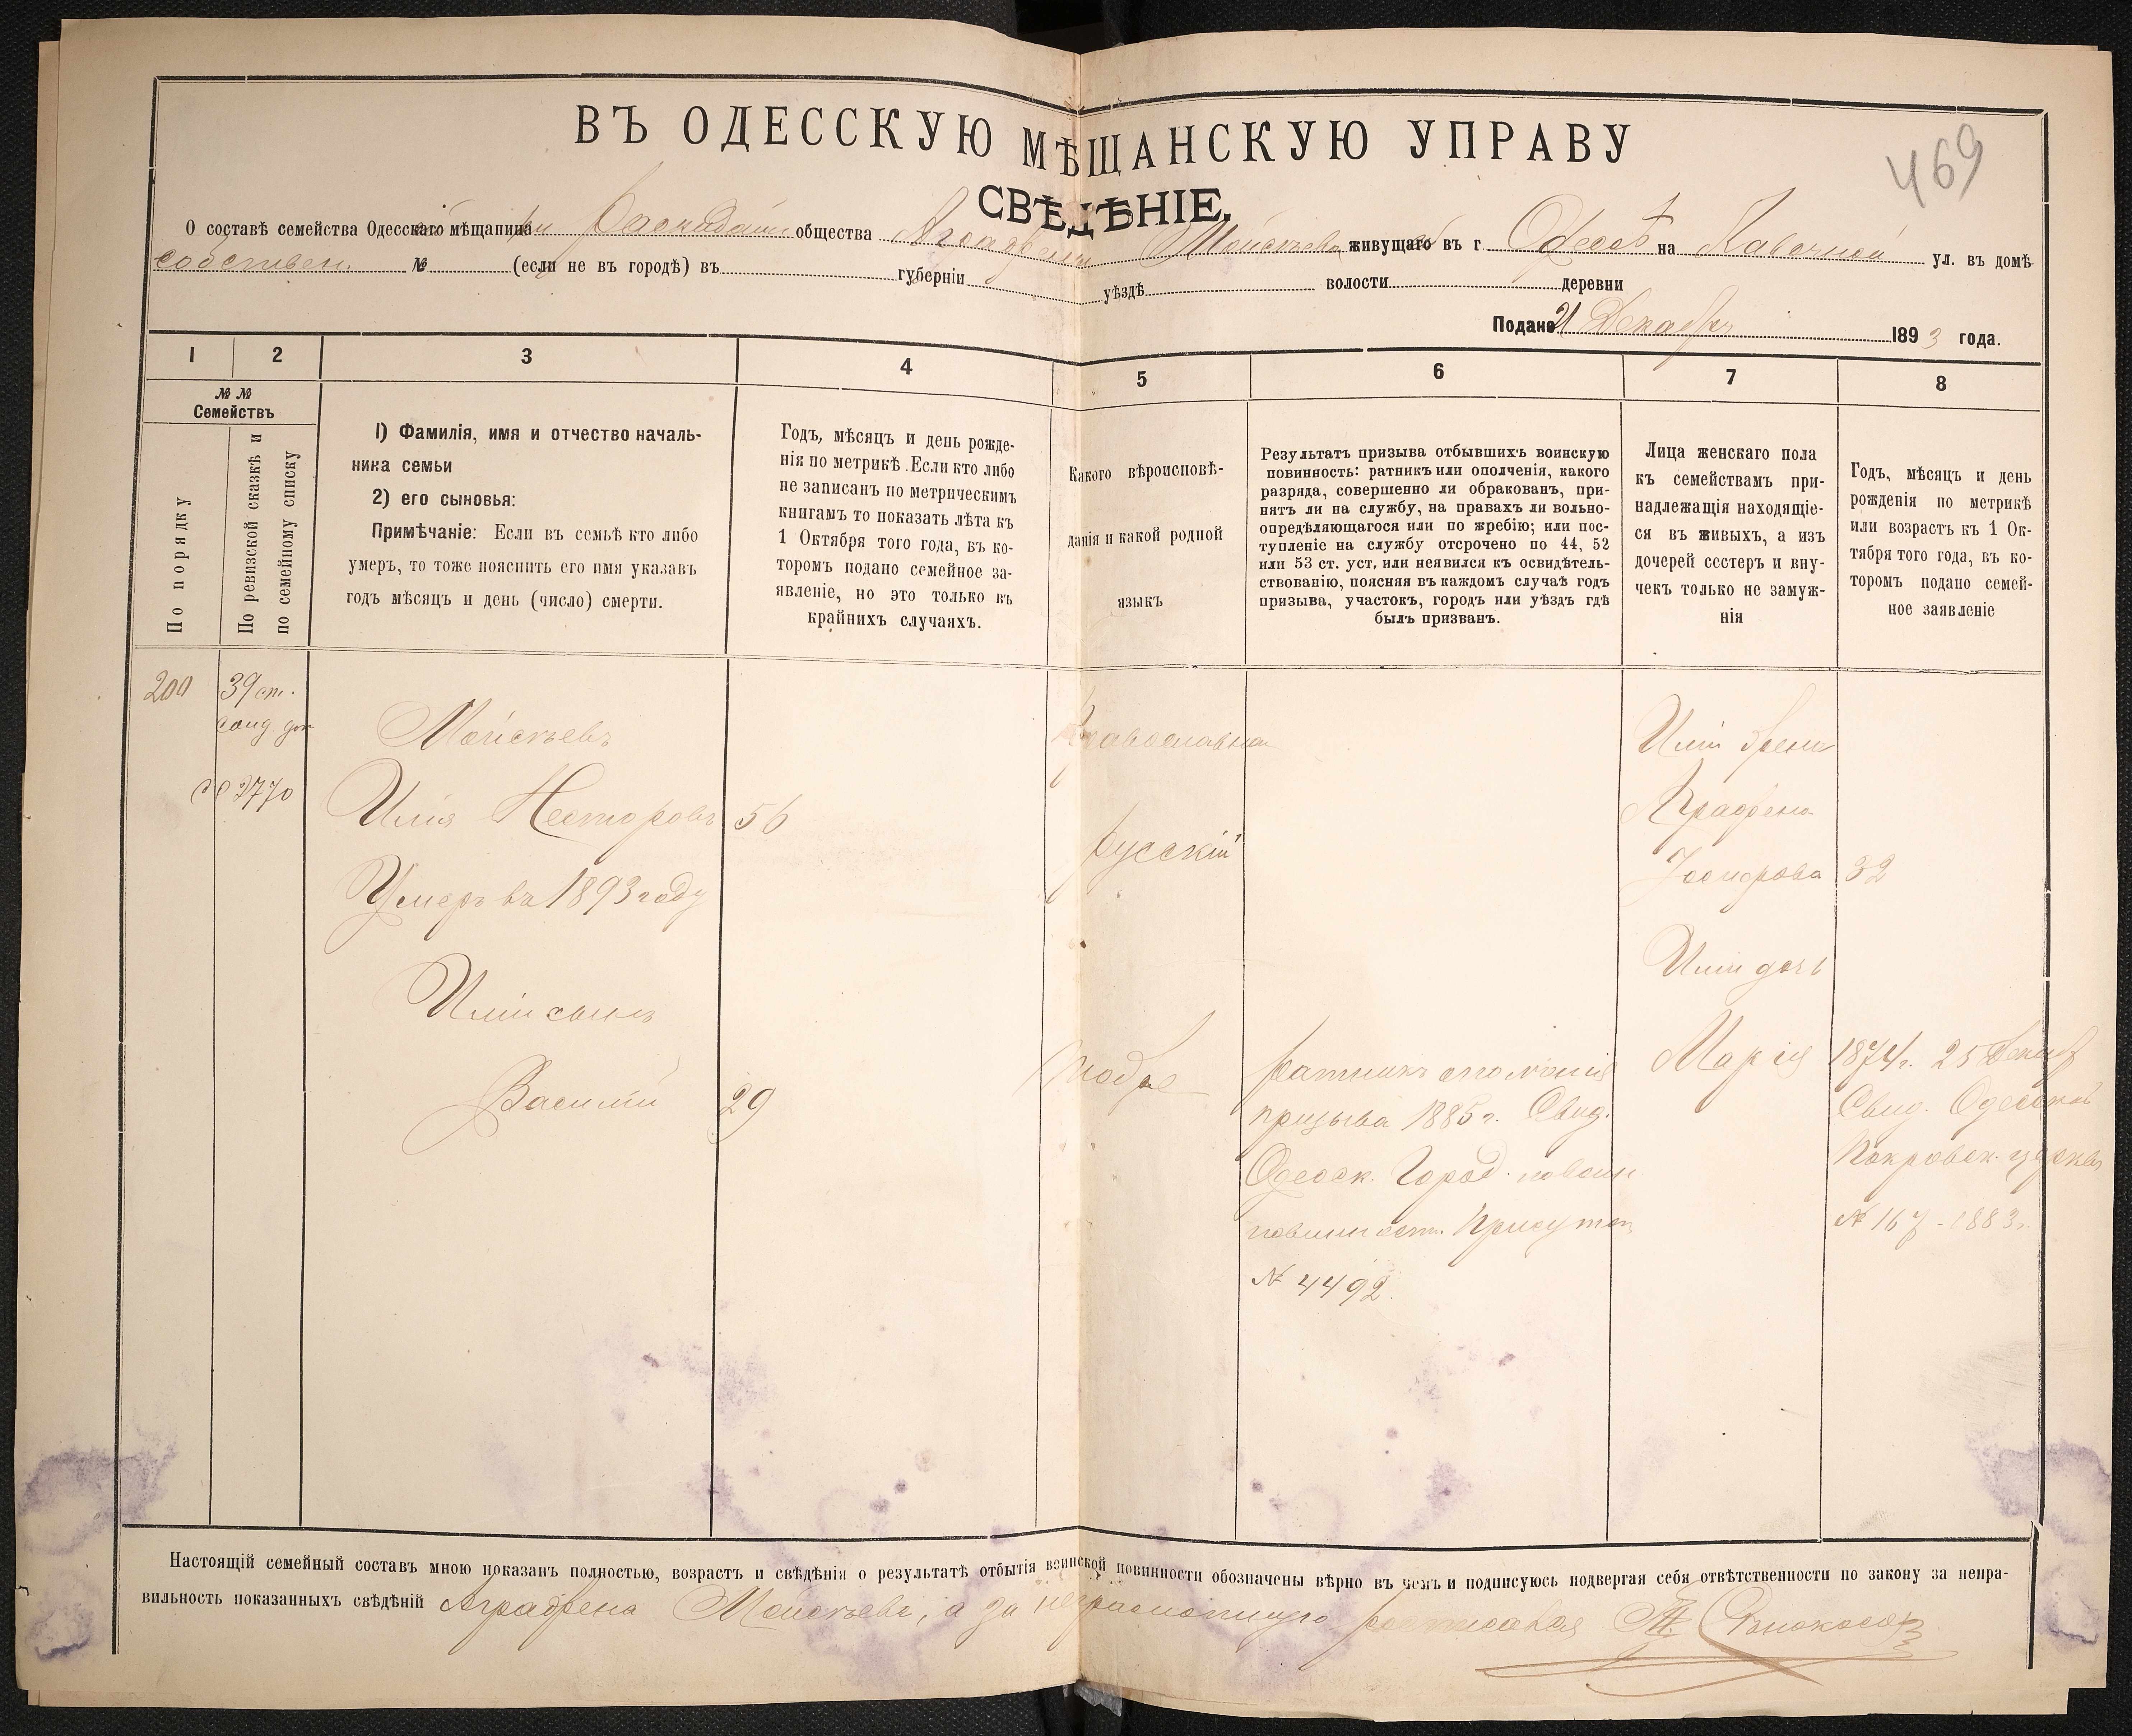 469
ВЪ ОДЕССКУЮ МѢЩАНСКУЮ УПРАВУ
СВѢДѢНІЕ,
О составѣ семейства Одесскаго мѣщанина общества Аграфены Мойсѣева живущаго въ г Одессѣ на ул. въ домѣ
собствен. № (если не въ городѣ) въ губерніи уѣздѣ волости деревни
Подано 21 Декабр 1893 года.
1 2 3 4 5 6 7 8
№ №
Семействъ
По порядку
По ревизской сказкѣ и
по семейному списку
1) Фамилія, имя и отчество началь-
ника семьи
2) его сыновья:
Примѣчаніе: Если въ семьѣ кто либо
умеръ, то тоже пояснить его имя указавъ
годъ мѣсяцъ и день (число) смерти.
Годъ, мѣсяцъ и день рожде-
нія по метрикѣ .Если кто либо
не записанъ по метрическимъ
книгамъ то показать лѣта къ
1 Октября того года, въ ко-
торомъ подано семейное за-
явленіе, но это только въ
крайнихъ случаяхъ.
Какого вѣроисповѣ-
данія и какой родной
языкъ
Результатъ призыва отбывшихъ воинскую
повинность: ратникъ или ополченія, какого
разряда, совершенно ли обракованъ, при-
нятъ ли на службу, на правахъ ли вольно-
опредѣляющагося или по жребію; или пос-
тупленіе на службу отсрочено по 44, 52
или 53 ст. уст, или неявился къ освидѣтель-
ствованію, поясняя въ каждомъ случаѣ годъ
призыва, участокъ, городъ или уѣздъ гдѣ
былъ призванъ.
Лица женскаго пола
къ семействамъ при-
надлежащія находящіе-
ся въ живыхъ, а изъ
дочерей сестеръ и вну-
чекъ только не замуж-
нія
Годъ, мѣсяцъ и день
рожденія по метрикѣ
или возрастъ къ 1 Ок-
тября того года, въ ко-
торомъ подано семей-
ное заявленіе
200 39 ст.
2770
Мойсѣевъ
Илія Несторовъ 56
Умеръ въ 1893 году
Иліи сынъ
Василій 29
Православна
русскій
тоже
Ратникъ ополченія
призыва 1885 г. Свид.
Одесск. Город. по воин
повинност. Присутст
№ 4492.
Иліи
Аграфена
32
Иліи дочь
Марія
1874 г. 25 Декабр
Свид. Одесской
Покровск. церкви
№ 167 - 1883 г.
Настоящій семейный составъ мною показанъ полностью, возрастъ и свѣдѣнія о результатѣ отбытія воинской повинности обозначены вѣрно въ чемъ и подписуюсь подвергая себя отвѣтственности по закону за непра-
вильность показанныхъ свѣдѣній Аграфена Мойсѣева, а за неграмотную росписался